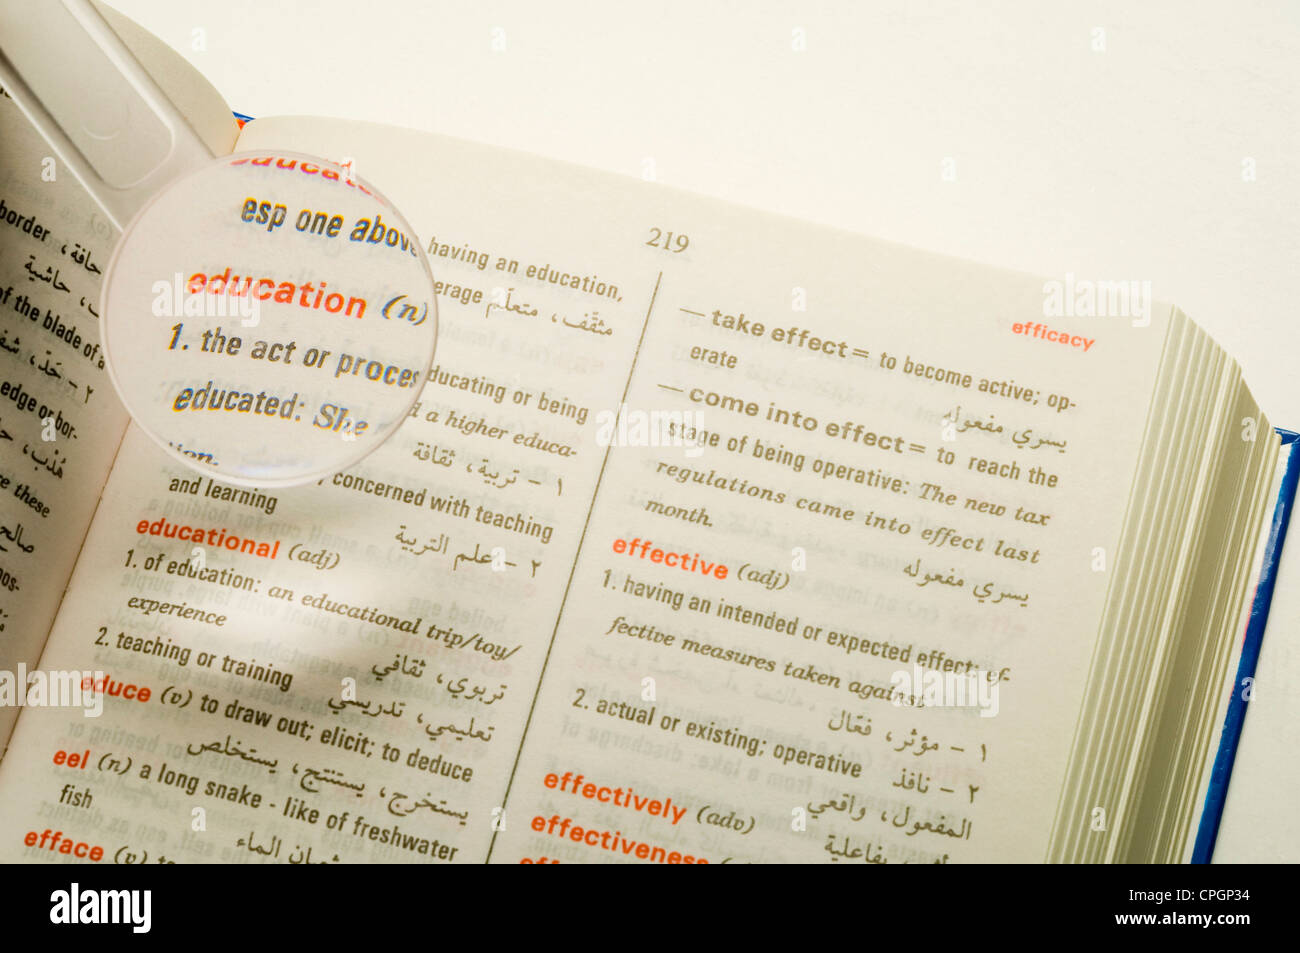 219
efficacy
educate
esp one above
having an education,
erage مثقّف، متعلّم
education (n)
1. the act or proces
ducating or being
educated: She
a higher educa-
tion.
١ - تربية، ثقافة
concerned with teaching
and learning
٢ - علم التربية
educational (adj)
1. of education: an educational trip/toy/
experience
تربوي، ثقافي
2. teaching or training
تعليمي، تدريسي
educe (v) to draw out; elicit; to deduce
يستخرج، يستنتج، يستخلص
eel (n) a long snake - like of freshwater
fish
ثعبان الماء
efface (v) to
— take effect = to become active; op-
erate
يسري مفعوله
— come into effect = to reach the
stage of being operative: The new tax
regulations came into effect last
month.
يسري مفعوله
effective (adj)
1. having an intended or expected effect: ef-
fective measures taken against
١ - مؤثر، فعّال
2. actual or existing; operative
٢ - نافذ
المفعول، واقعي
effectively (adv)
بفاعلية
effectiveness
border
حافة،
حاشية
of the blade of a
٢ - حَدّ،
edge or bor-
هُدْب،
re these
صالح
pos-
alamy
Image ID: CPGP34
www.alamy.com